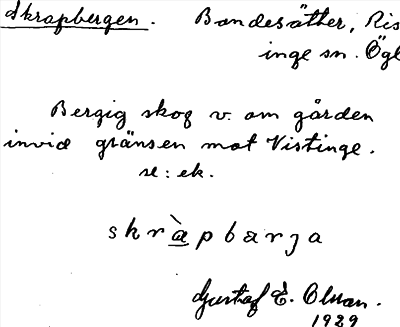 Skrapbergen. Bondesätter, Ris
inge sn. Ögl
Bergig skog v. om gården
invid gränsen mot Vistinge.
se: ek.
skràpbærja
Gustaf E. Olsson.
1929